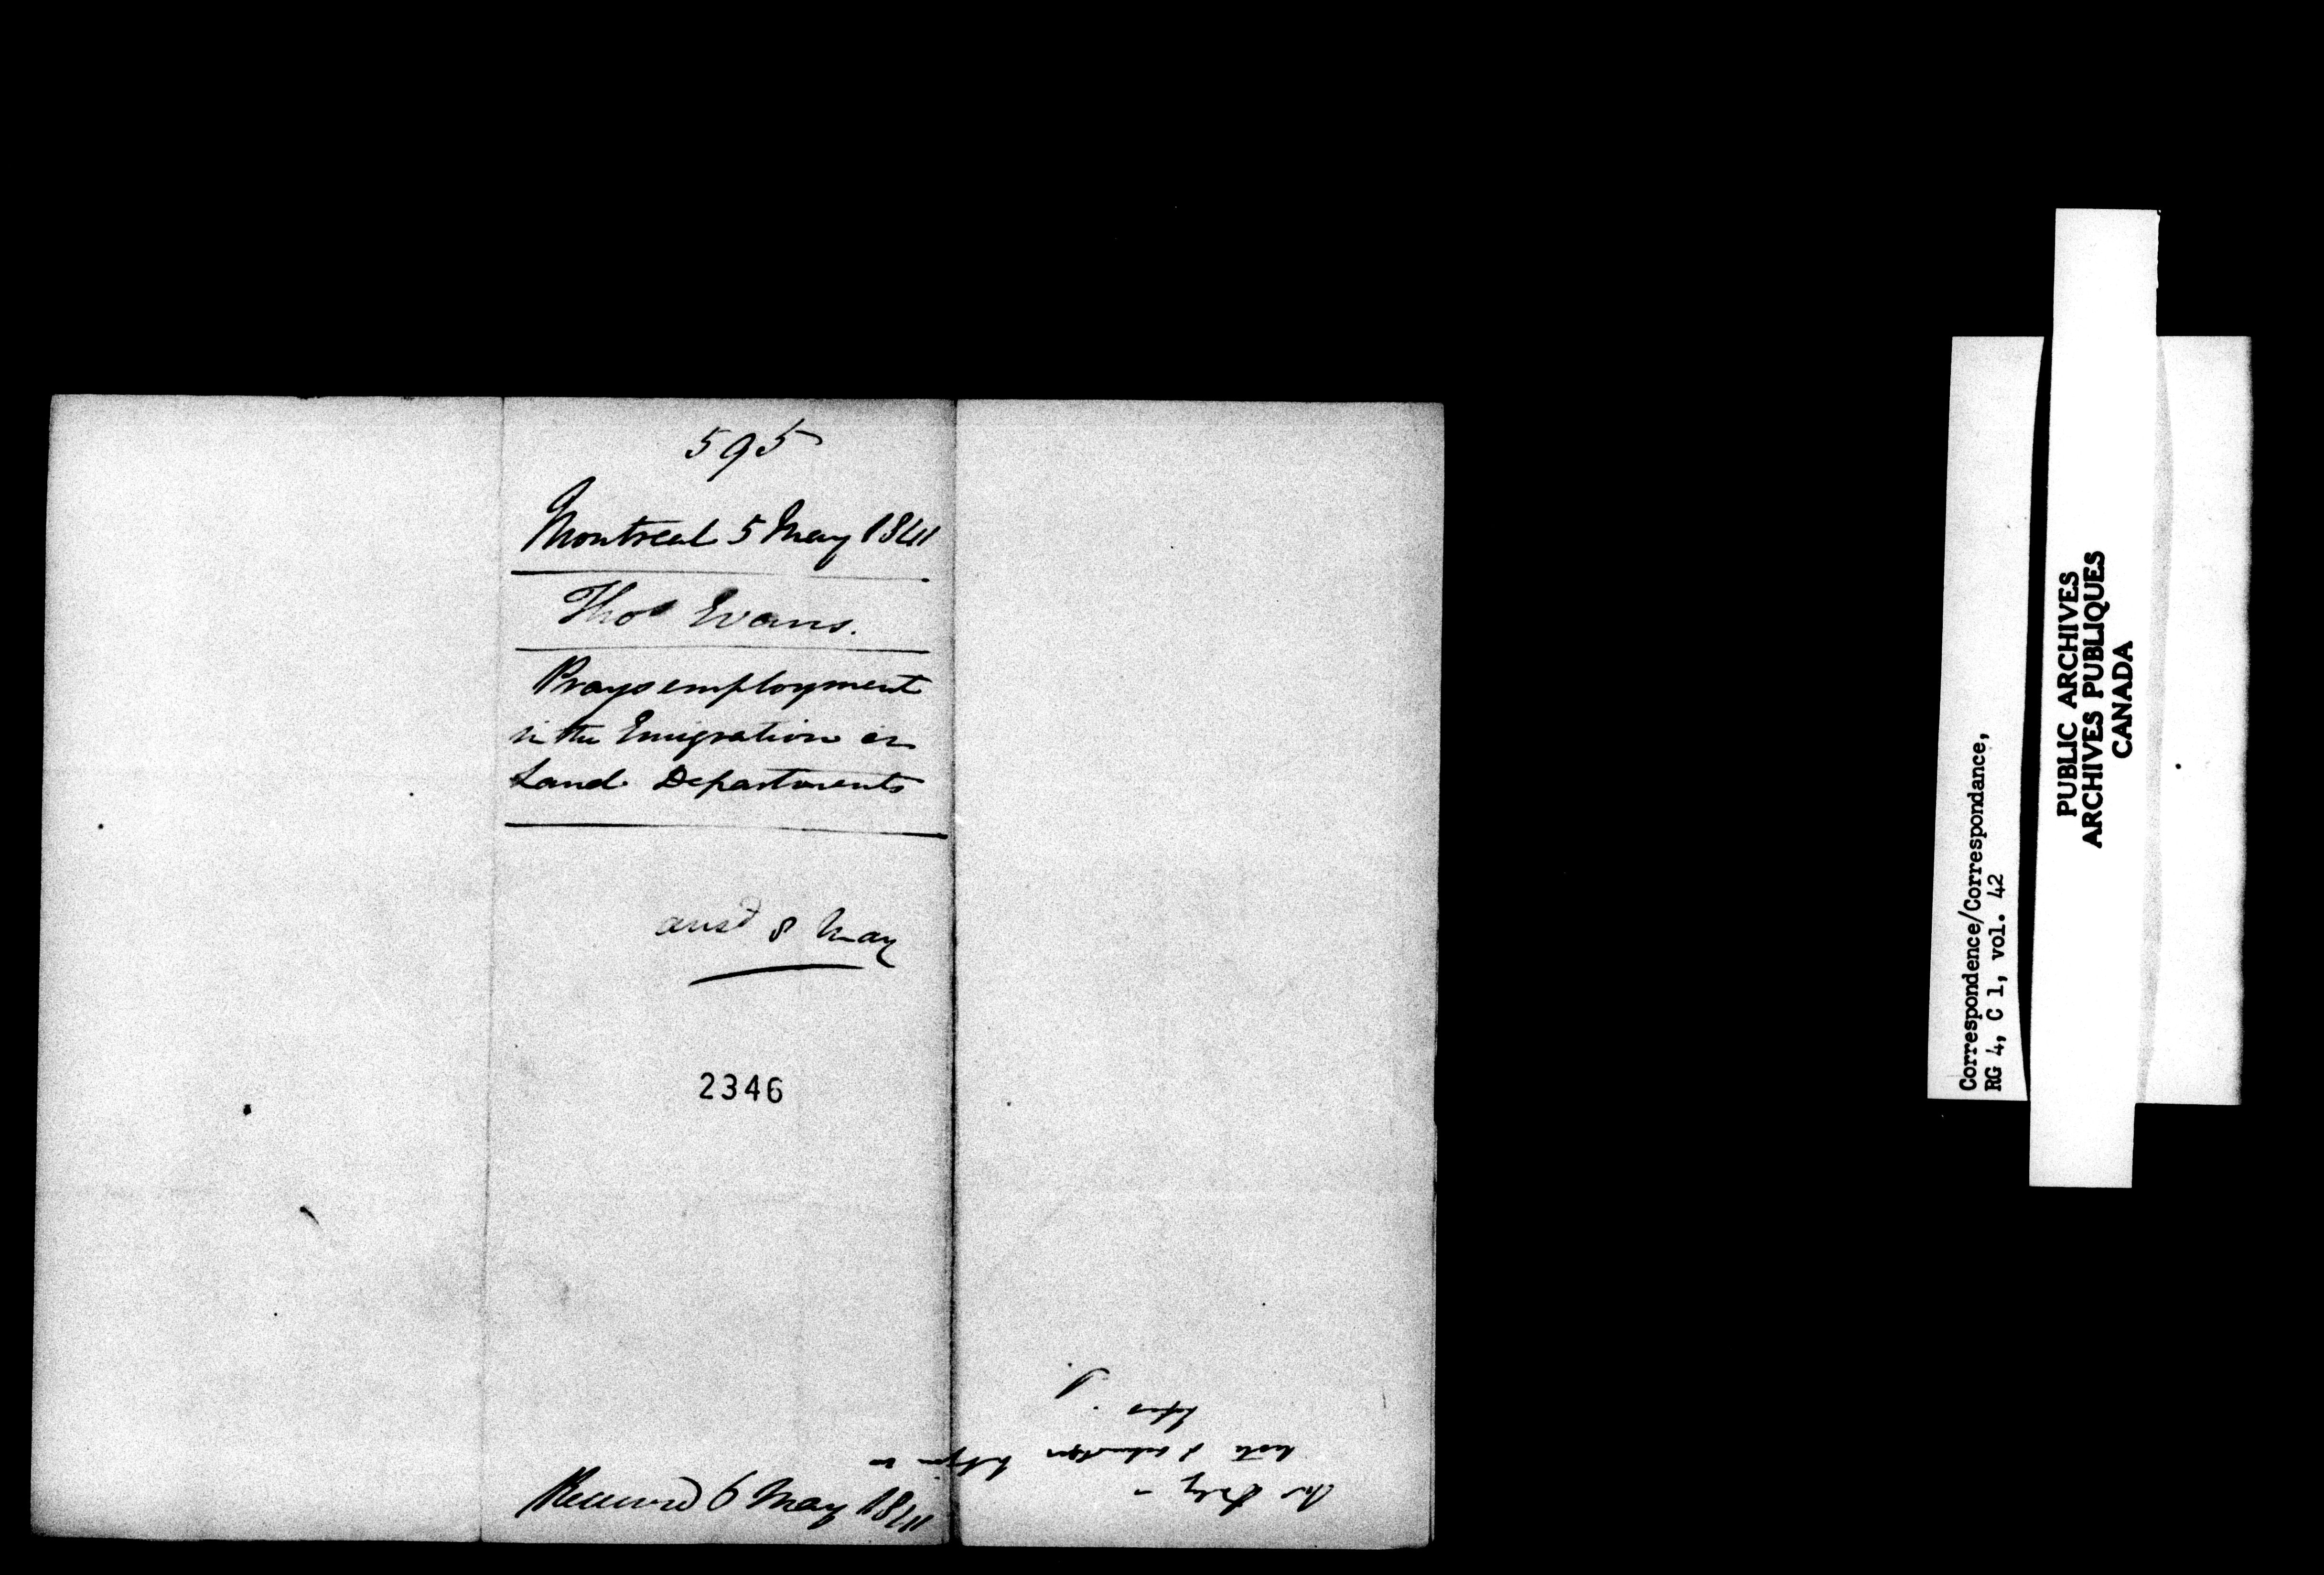 595
Montreal 5 May 1841
Thos Evans.
Prays employment
in the Emigration or
Land Departments
ansd 8 May
2346
Received 6 May 1841
Mr Daly
Correspondence/Correspondance,
RG 4, C 1, vol. 42
PUBLIC ARCHIVES
ARCHIVES PUBLIQUES
CANADA